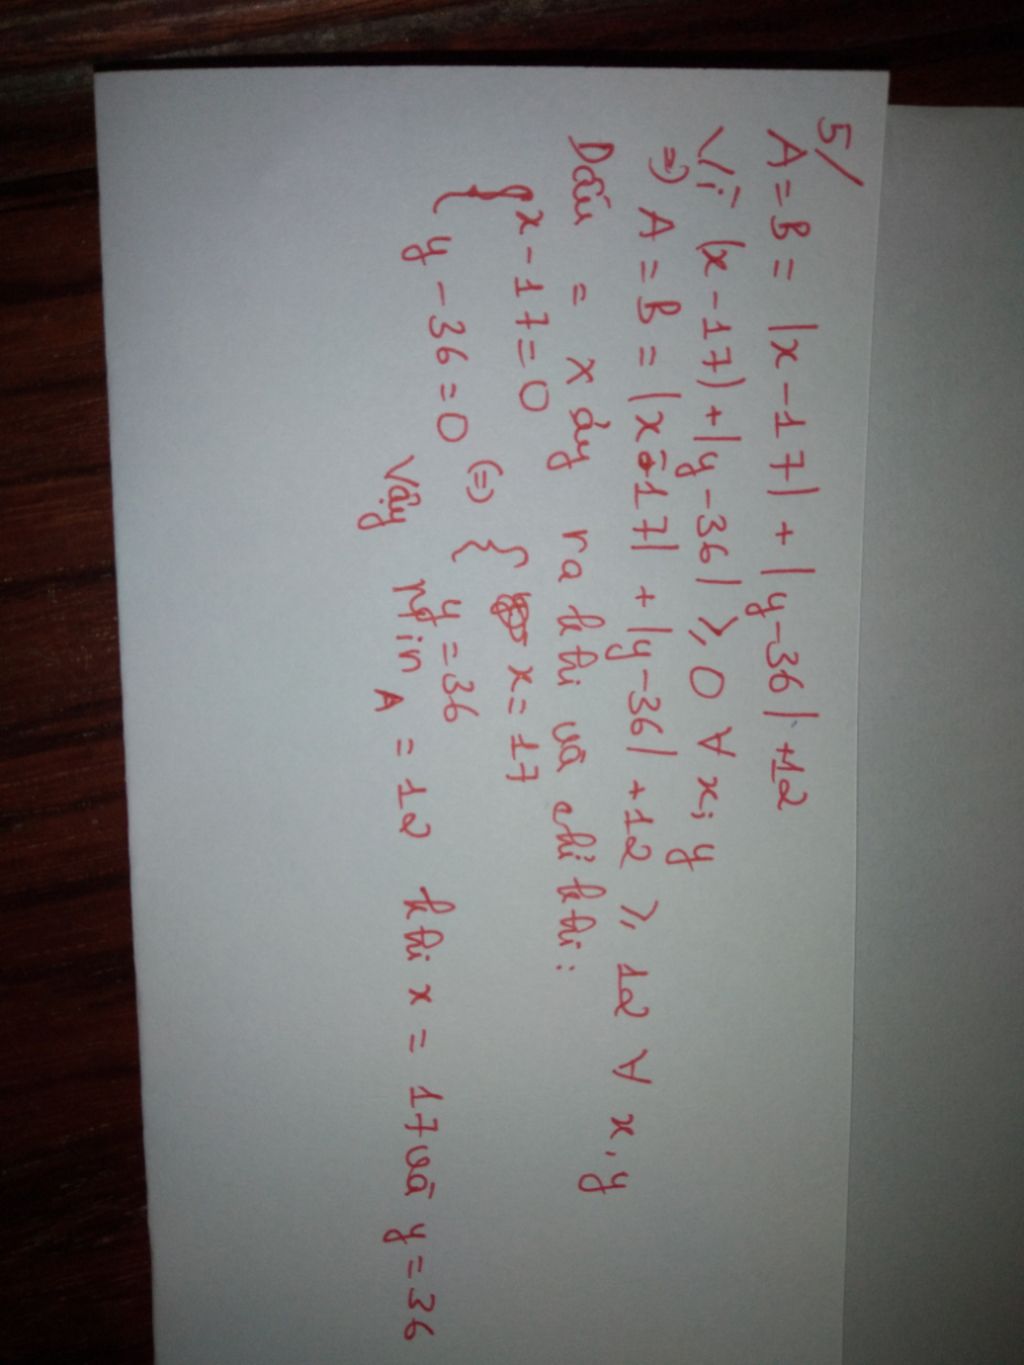 5/
A = B = |x - 17| + |y - 36| + 12
Vì |x - 17) + |y - 36| ≥ 0 ∀ x; y
=> A = B = |x - 17| + |y - 36| + 12 ≥ 12 ∀ x, y
Dấu = xảy ra khi và chỉ khi:
{ x - 17 = 0
{ y - 36 = 0 (=) { x = 17
y = 36
Vậy Min A = 12 khi x = 17 và y = 36